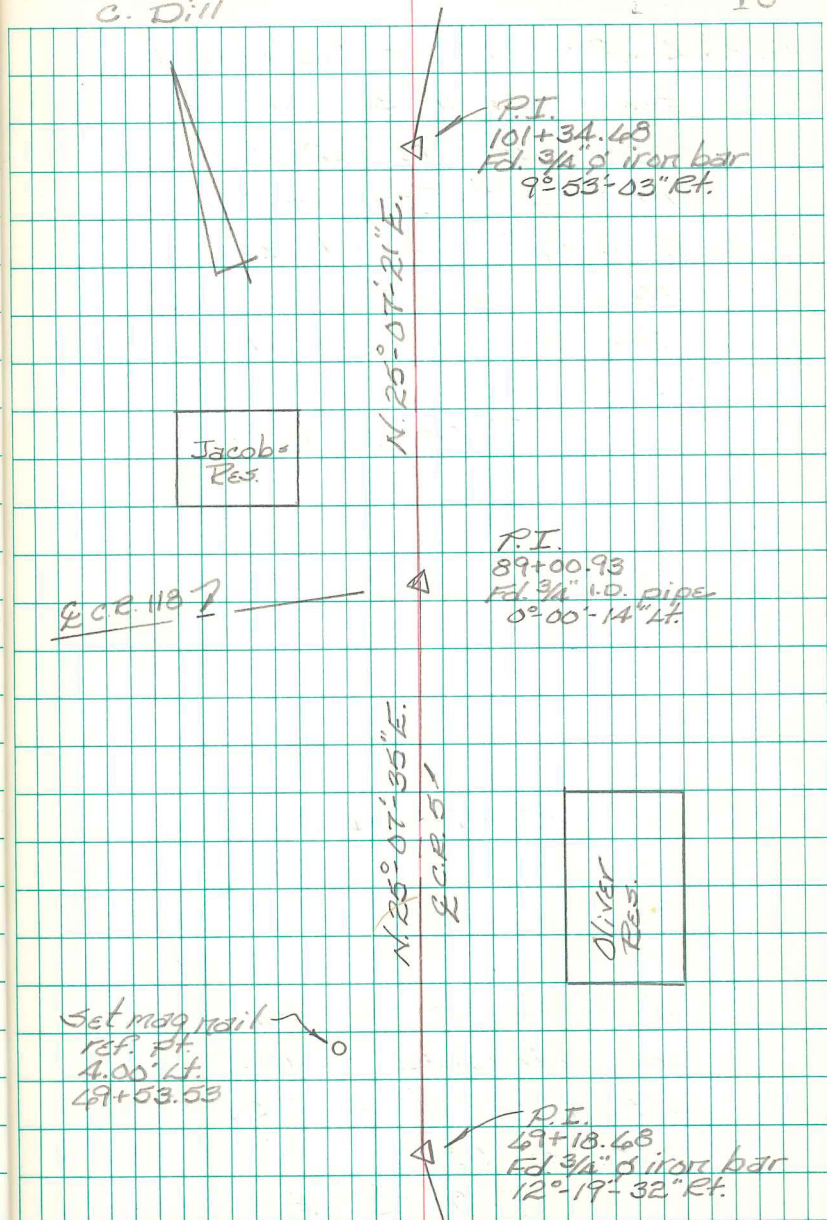 C. Dill
P.I.
101+34.68
Fd. 3/4" ø iron bar
9°-53'-03" Rt.
N. 25°-07'-21" E.
Jacobs
Res.
P.I.
89+00.93
Fd. 3/4" I.D. pipe
0°-00'-14" Lt.
℄ C.R. 118
N. 25°-07'-35" E.
℄ C.R. 51
Oliver
Res.
Set mag nail
ref. pt.
4.00' Lt.
69+53.53
P.I.
69+18.68
Fd. 3/4" ø iron bar
12°-19'-32" Rt.